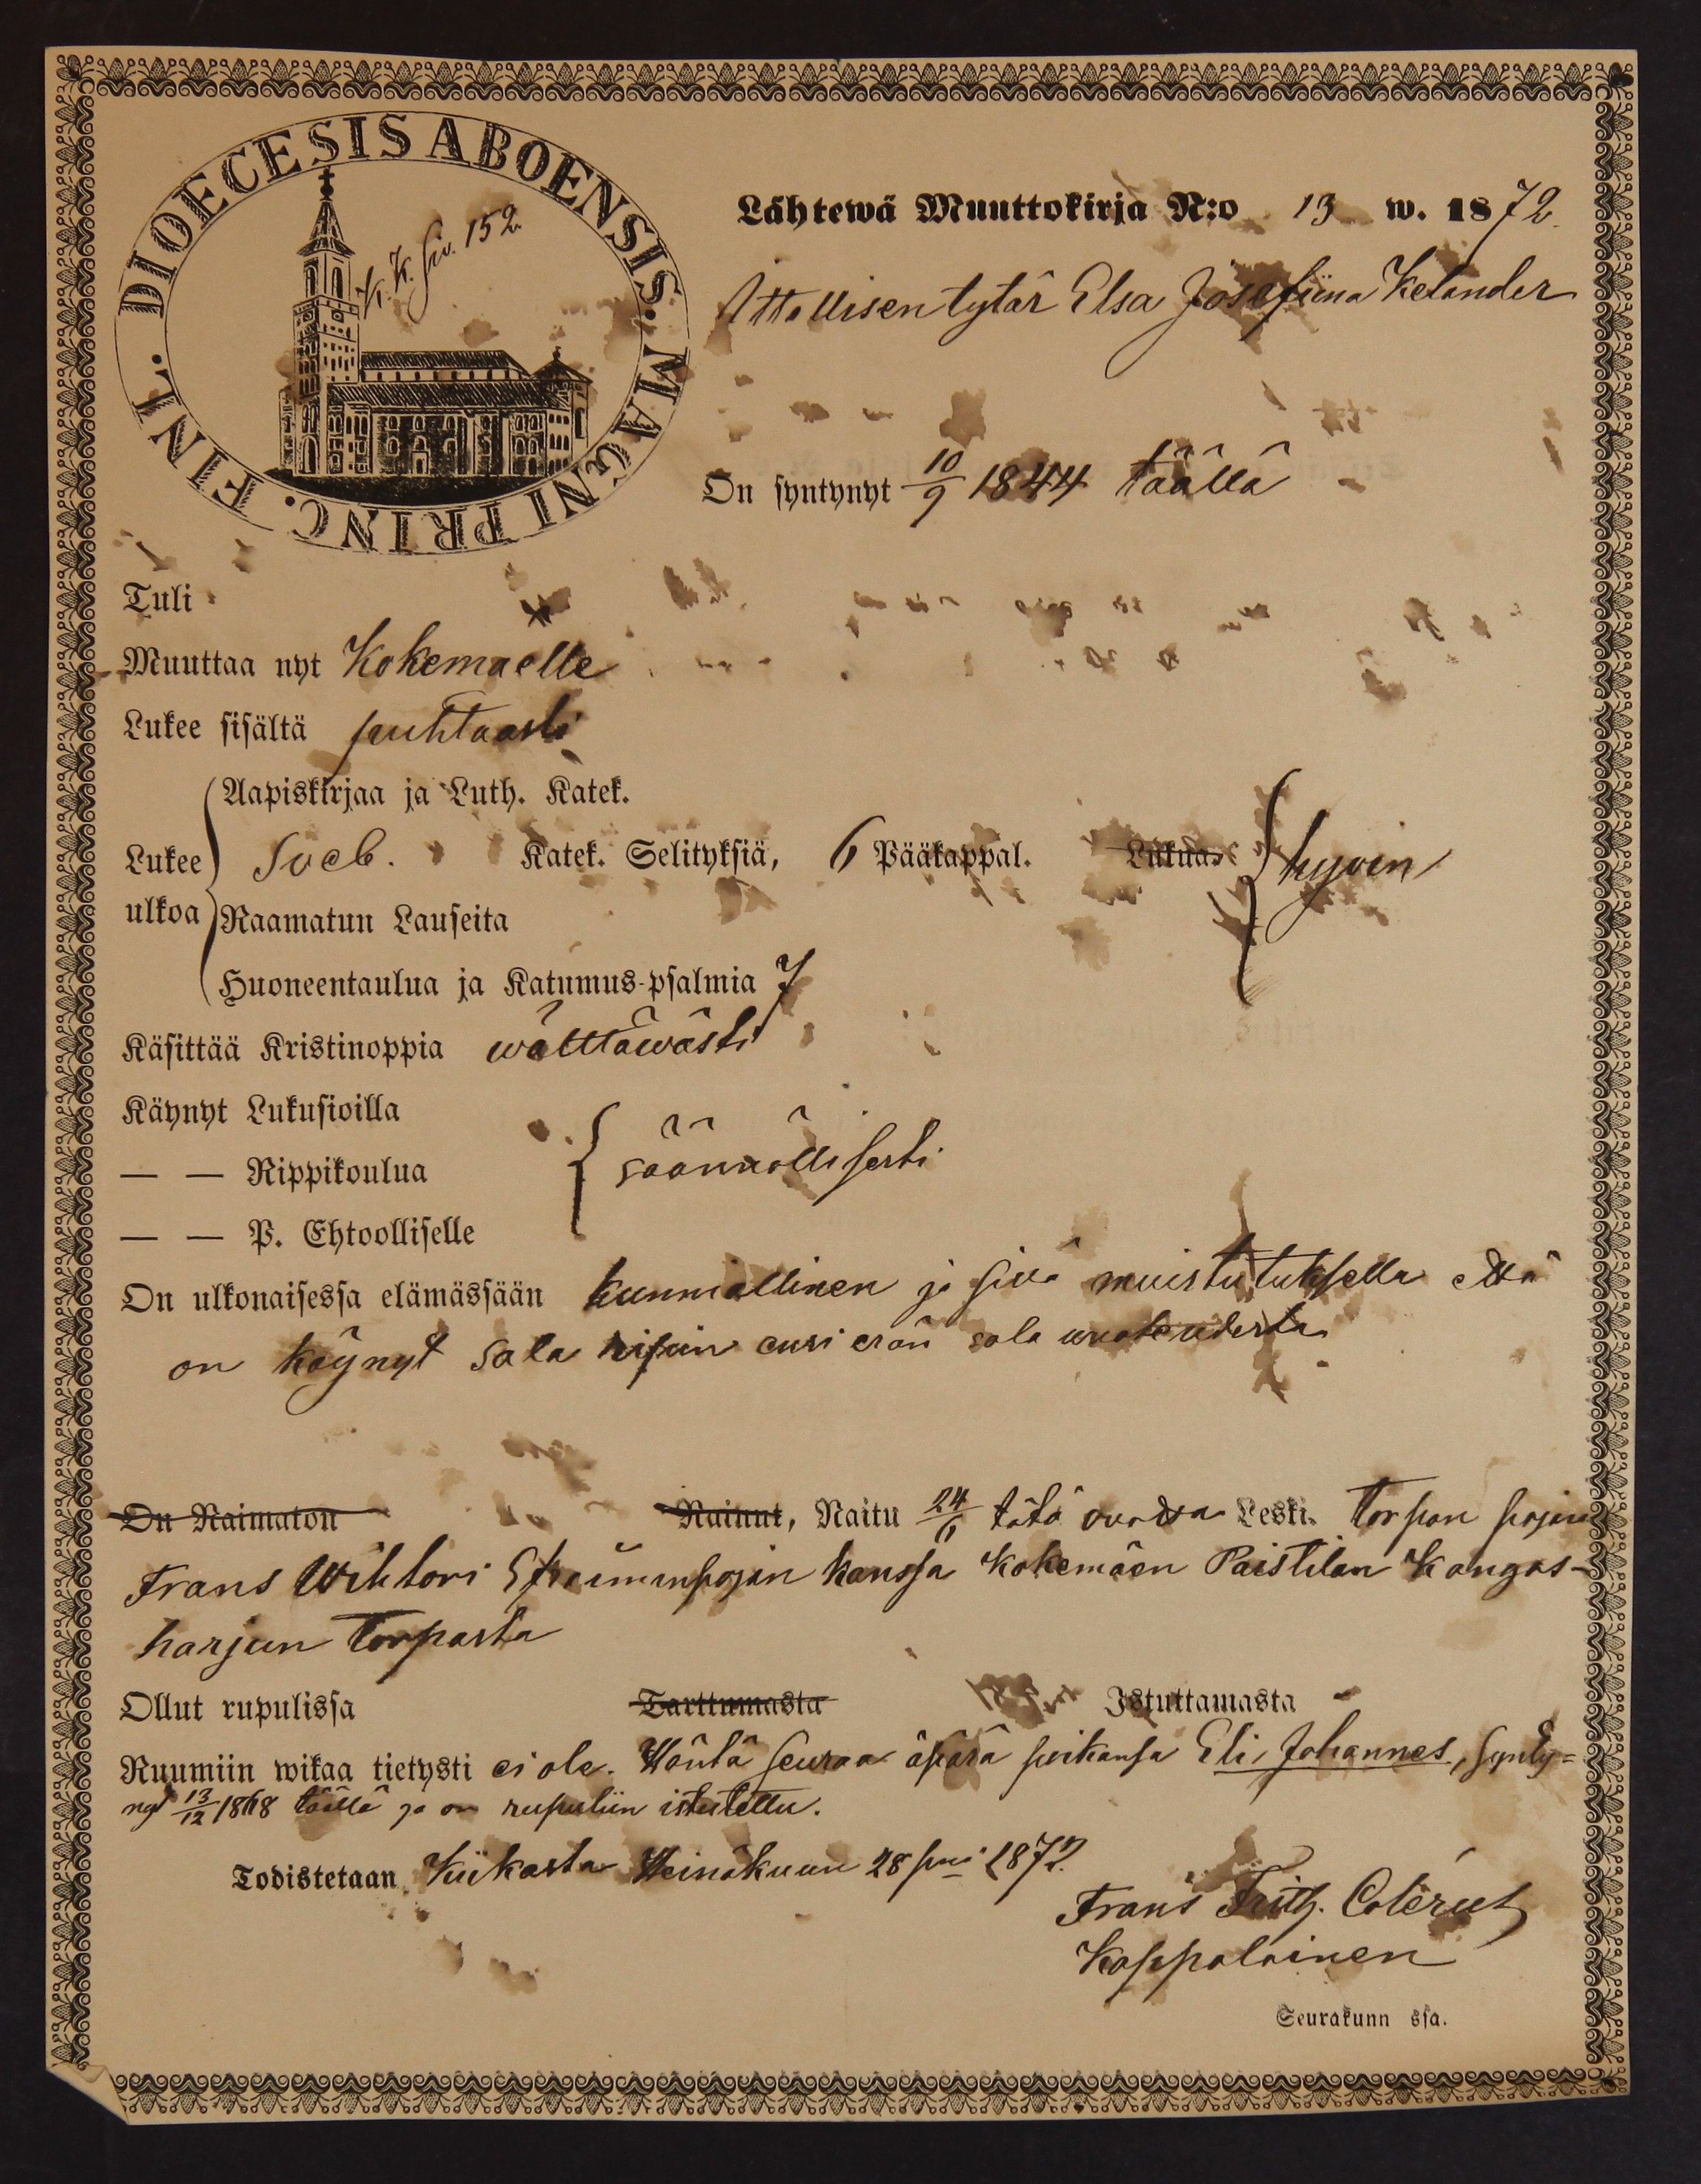 DIOECESIS ABOENSIS. MAGNI PRINC. FINL.
K. K. siv. 152
Lähtewä Muuttokirja N:o 13 w. 1872.
Itsellisen tytär Elsa Josefiina Kelander
On syntynyt 10/9 1844 täällä
Tuli
Muuttaa nyt Kokemäelle
Lukee sisältä puhtaasti
Aapiskirjaa ja Luth. Katek.
Lukee Sveb. Katek. Selityksiä, 6 Pääkappal. Lukua. hyvin
ulkoa Raamatun Lauseita
Huoneentaulua ja Katumus-psalmia 7
Käsittää Kristinoppia wälttäwästi
Käynyt Lukusioilla
— — Rippikoulua säännöllisesti
— — P. Ehtoolliselle
On ulkonaisessa elämässään kunniallinen ja sillä muistutuksella että
on käynyt sala ripin ensi erän sala vuoteudesta
On Naimaton Nainut, Naitu 24/6 tätä vuotta Leski. torpan pojan
Frans Wihtori Efraiminpojan kanssa Kokemäen Paistilan Kangas-
harjun torpasta
Ollut rupulissa Tarttumasta Istuttamasta
Ruumiin wikaa tietysti ei ole. Häntä seuraa äpärä poikansa Eli Johannes, synty=
nyt 13/12 1868 täällä ja on rupuliin istutettu.
Todistetaan Kiikasta Heinäkuun 28 p:nä 1872.
Frans Frith.
Kappalainen
Seurakunn ssa.